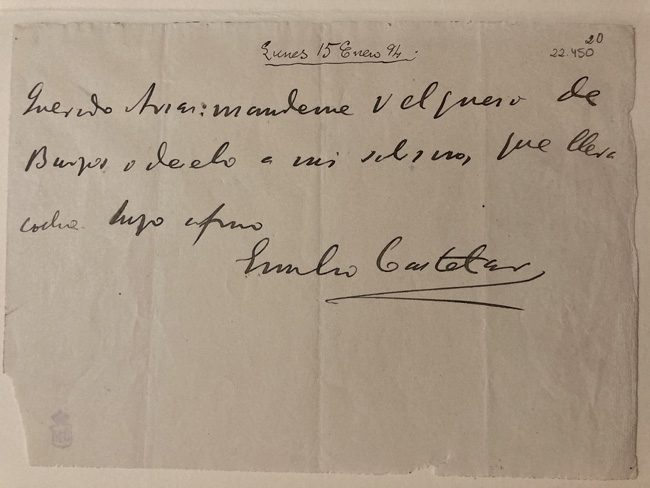 20
22.450
Lunes 15 Enero 94.
Querido Arias: mandeme V el queso de
Burgos o deselo a mi sobrino, que lleva
coche. Suyo afmo
Emilio Castelar